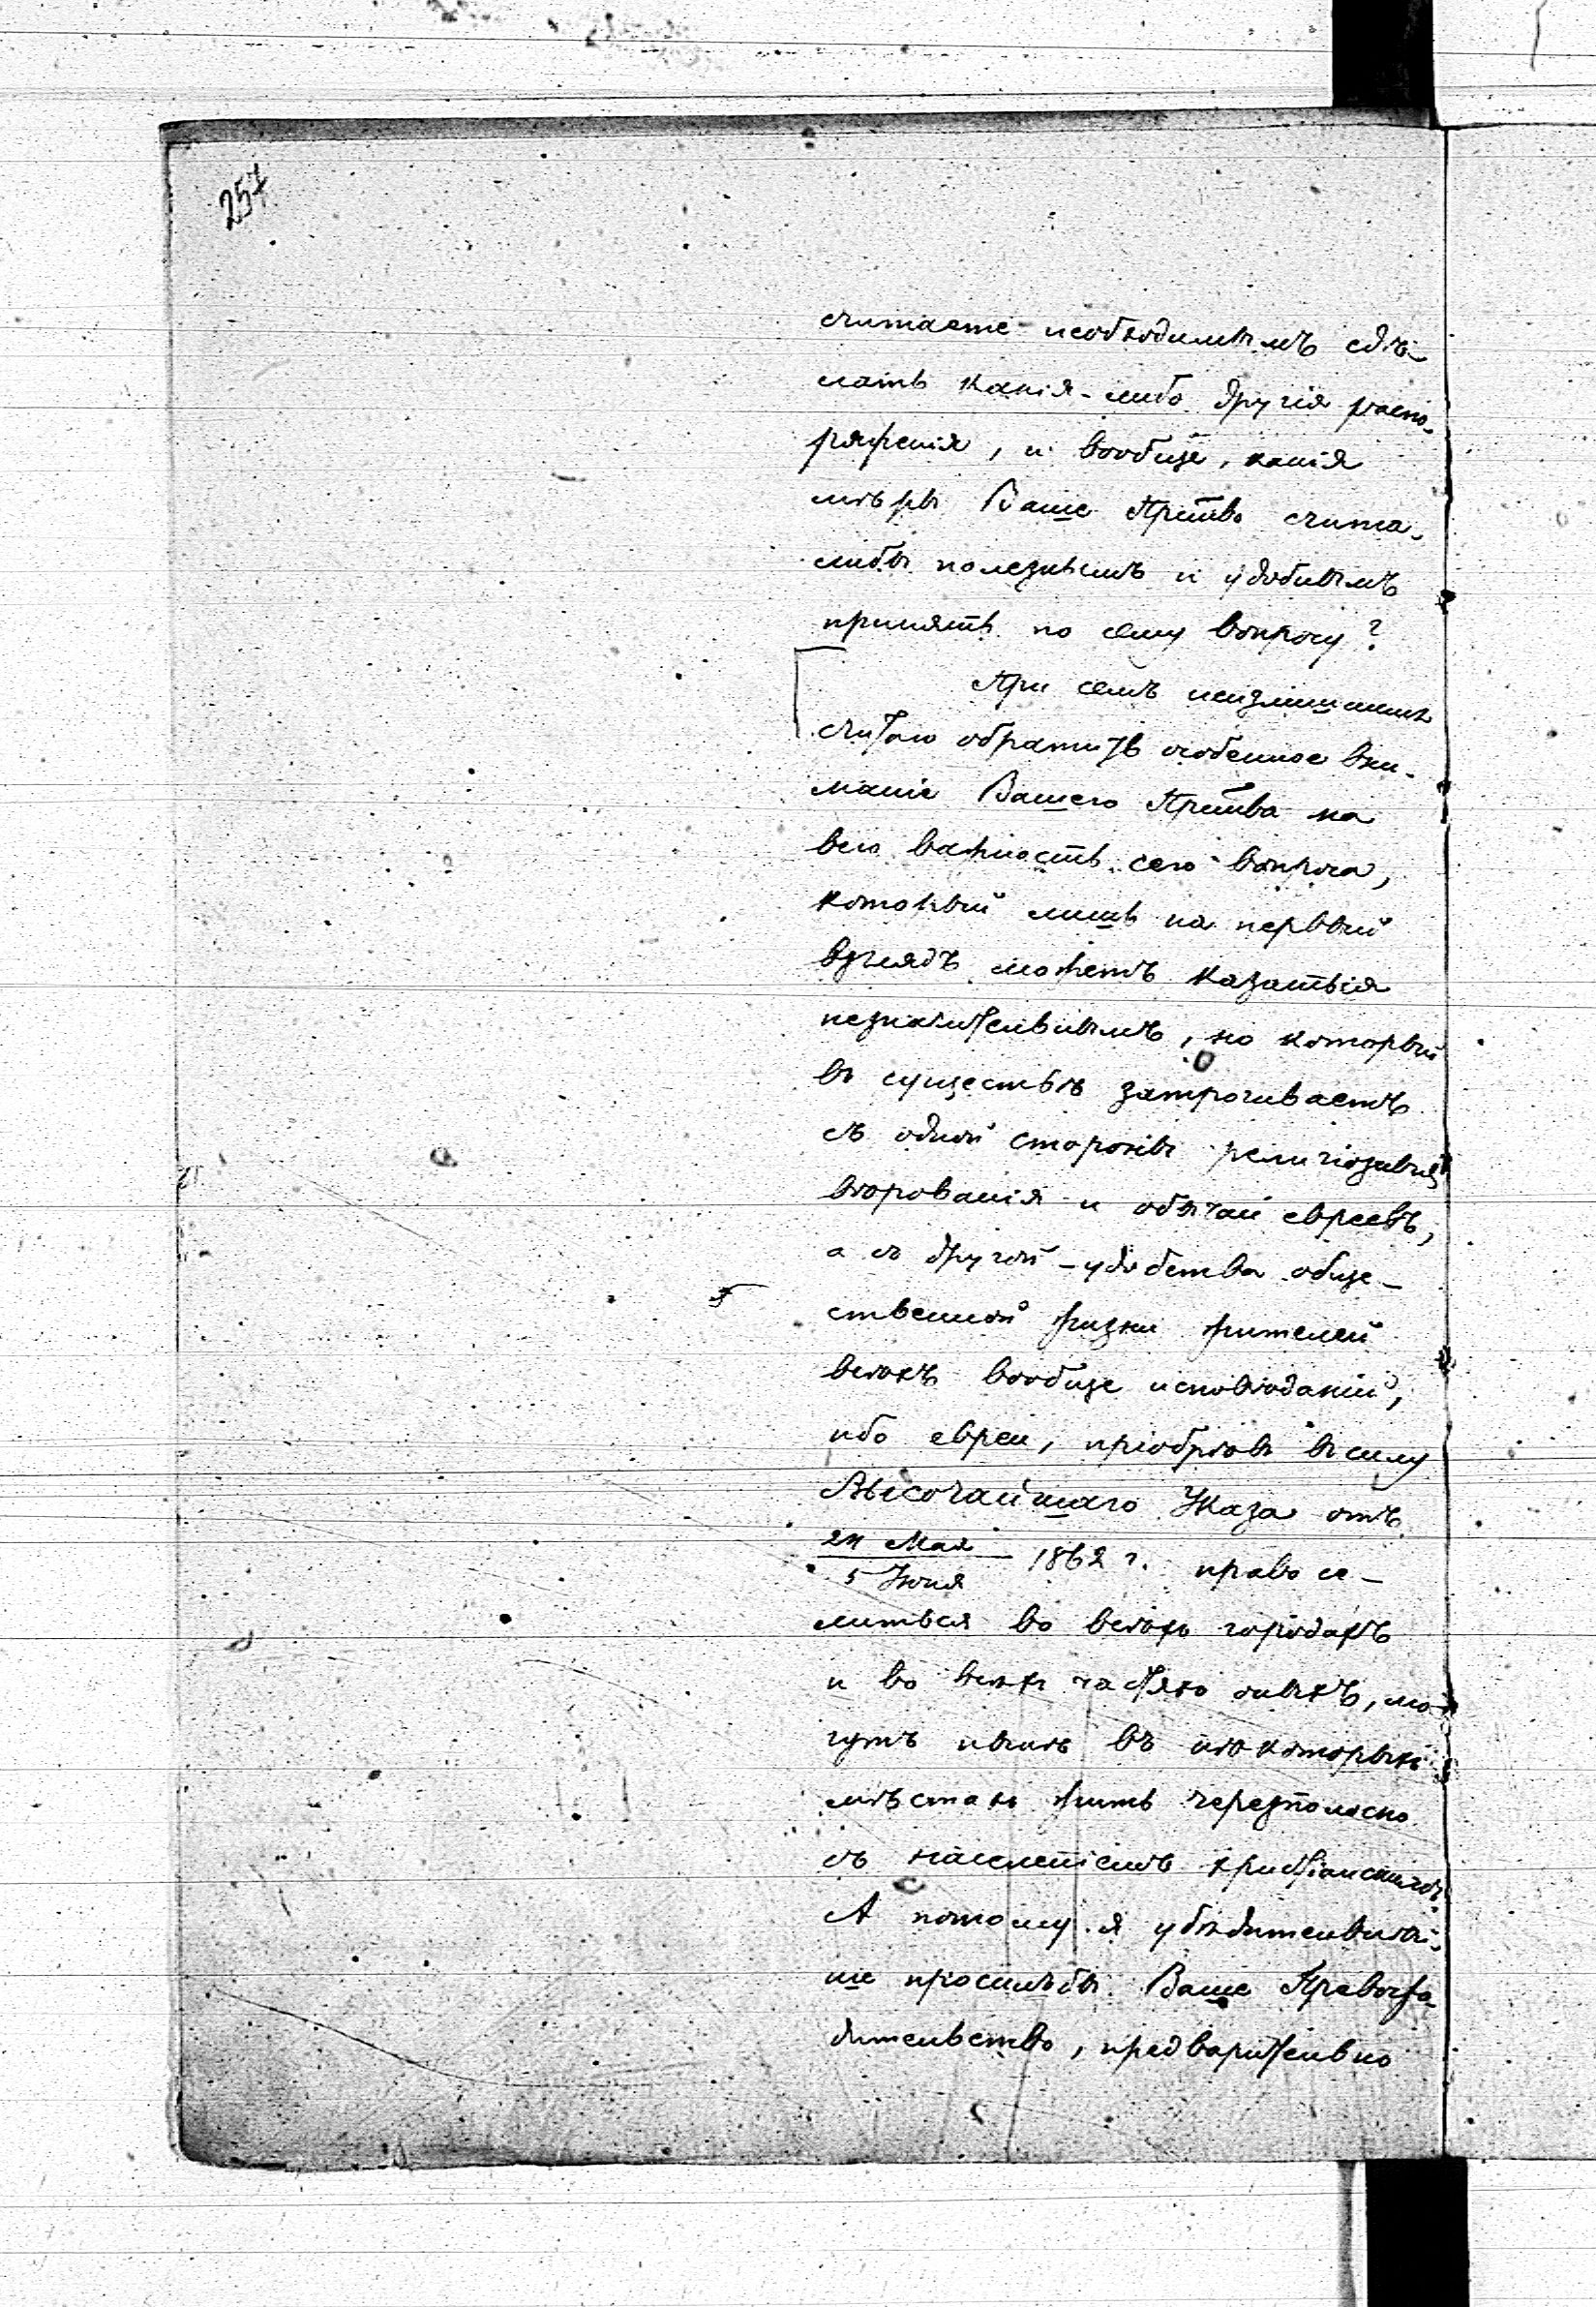 257
считаете необходимымъ сдѣ-
лать какія-либо другія распо-
ряженія, и вообще, какія
мѣры Ваше Пр-ство счита-
либы полезнымъ и удобнымъ
принять по сему вопросу?
При семъ неизлишнимъ
считаю обратить особенное вни-
маніе Вашего Пр-ства на
всю важность сего вопроса,
который лишь на первый
взглядъ можетъ казаться
незначительнымъ, но который
въ существѣ затрогиваетъ
съ одной стороны религіозныя
вѣрованія и обычаи евреевъ,
а съ другой - удобства обще-
ственной жизни жителей
всѣхъ вообще исповѣданій,
ибо евреи, пріобрѣвъ въ силу
Высочайшаго Указа отъ
24 Мая / 5 Іюня 1862 г. право се-
литься во всѣхъ городахъ
и во всѣхъ частяхъ оныхъ, мо-
гутъ нынѣ въ нѣкоторыхъ
мѣстахъ жить черезполосно
съ населеніемъ христіанскимъ.
А потому я убѣдительнѣй-
ше просилъ бы Ваше Превосхо-
дительство, предварительно